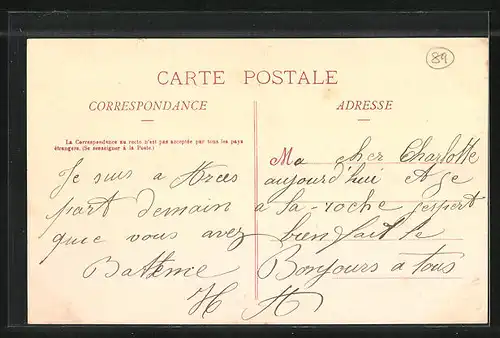 89
CARTE POSTALE
CORRESPONDANCE
ADRESSE
La Correspondance au recto n'est pas acceptée par tous les pays
étrangers. (Se renseigner à la Poste.)
Ma cher Charlotte
Je suis a aujourd'hui et je
part demain a la roche j'espert
que vous avez bien fait le
Batteme Bonjours a tous
H H